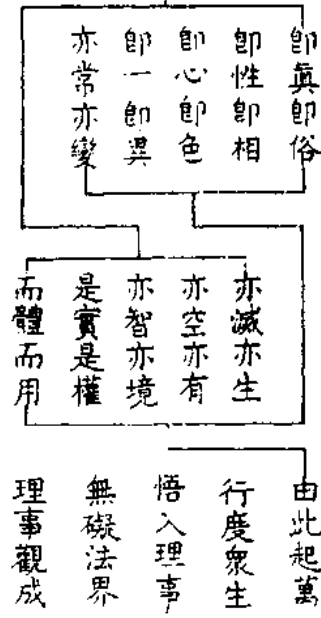 即真即俗
即性即相
即心即色
即一即異
亦常亦變
亦滅亦生
亦空亦有
亦智亦境
是實是權
而體而用
由此起萬
行度衆生
悟入理事
無礙法界
理事觀成